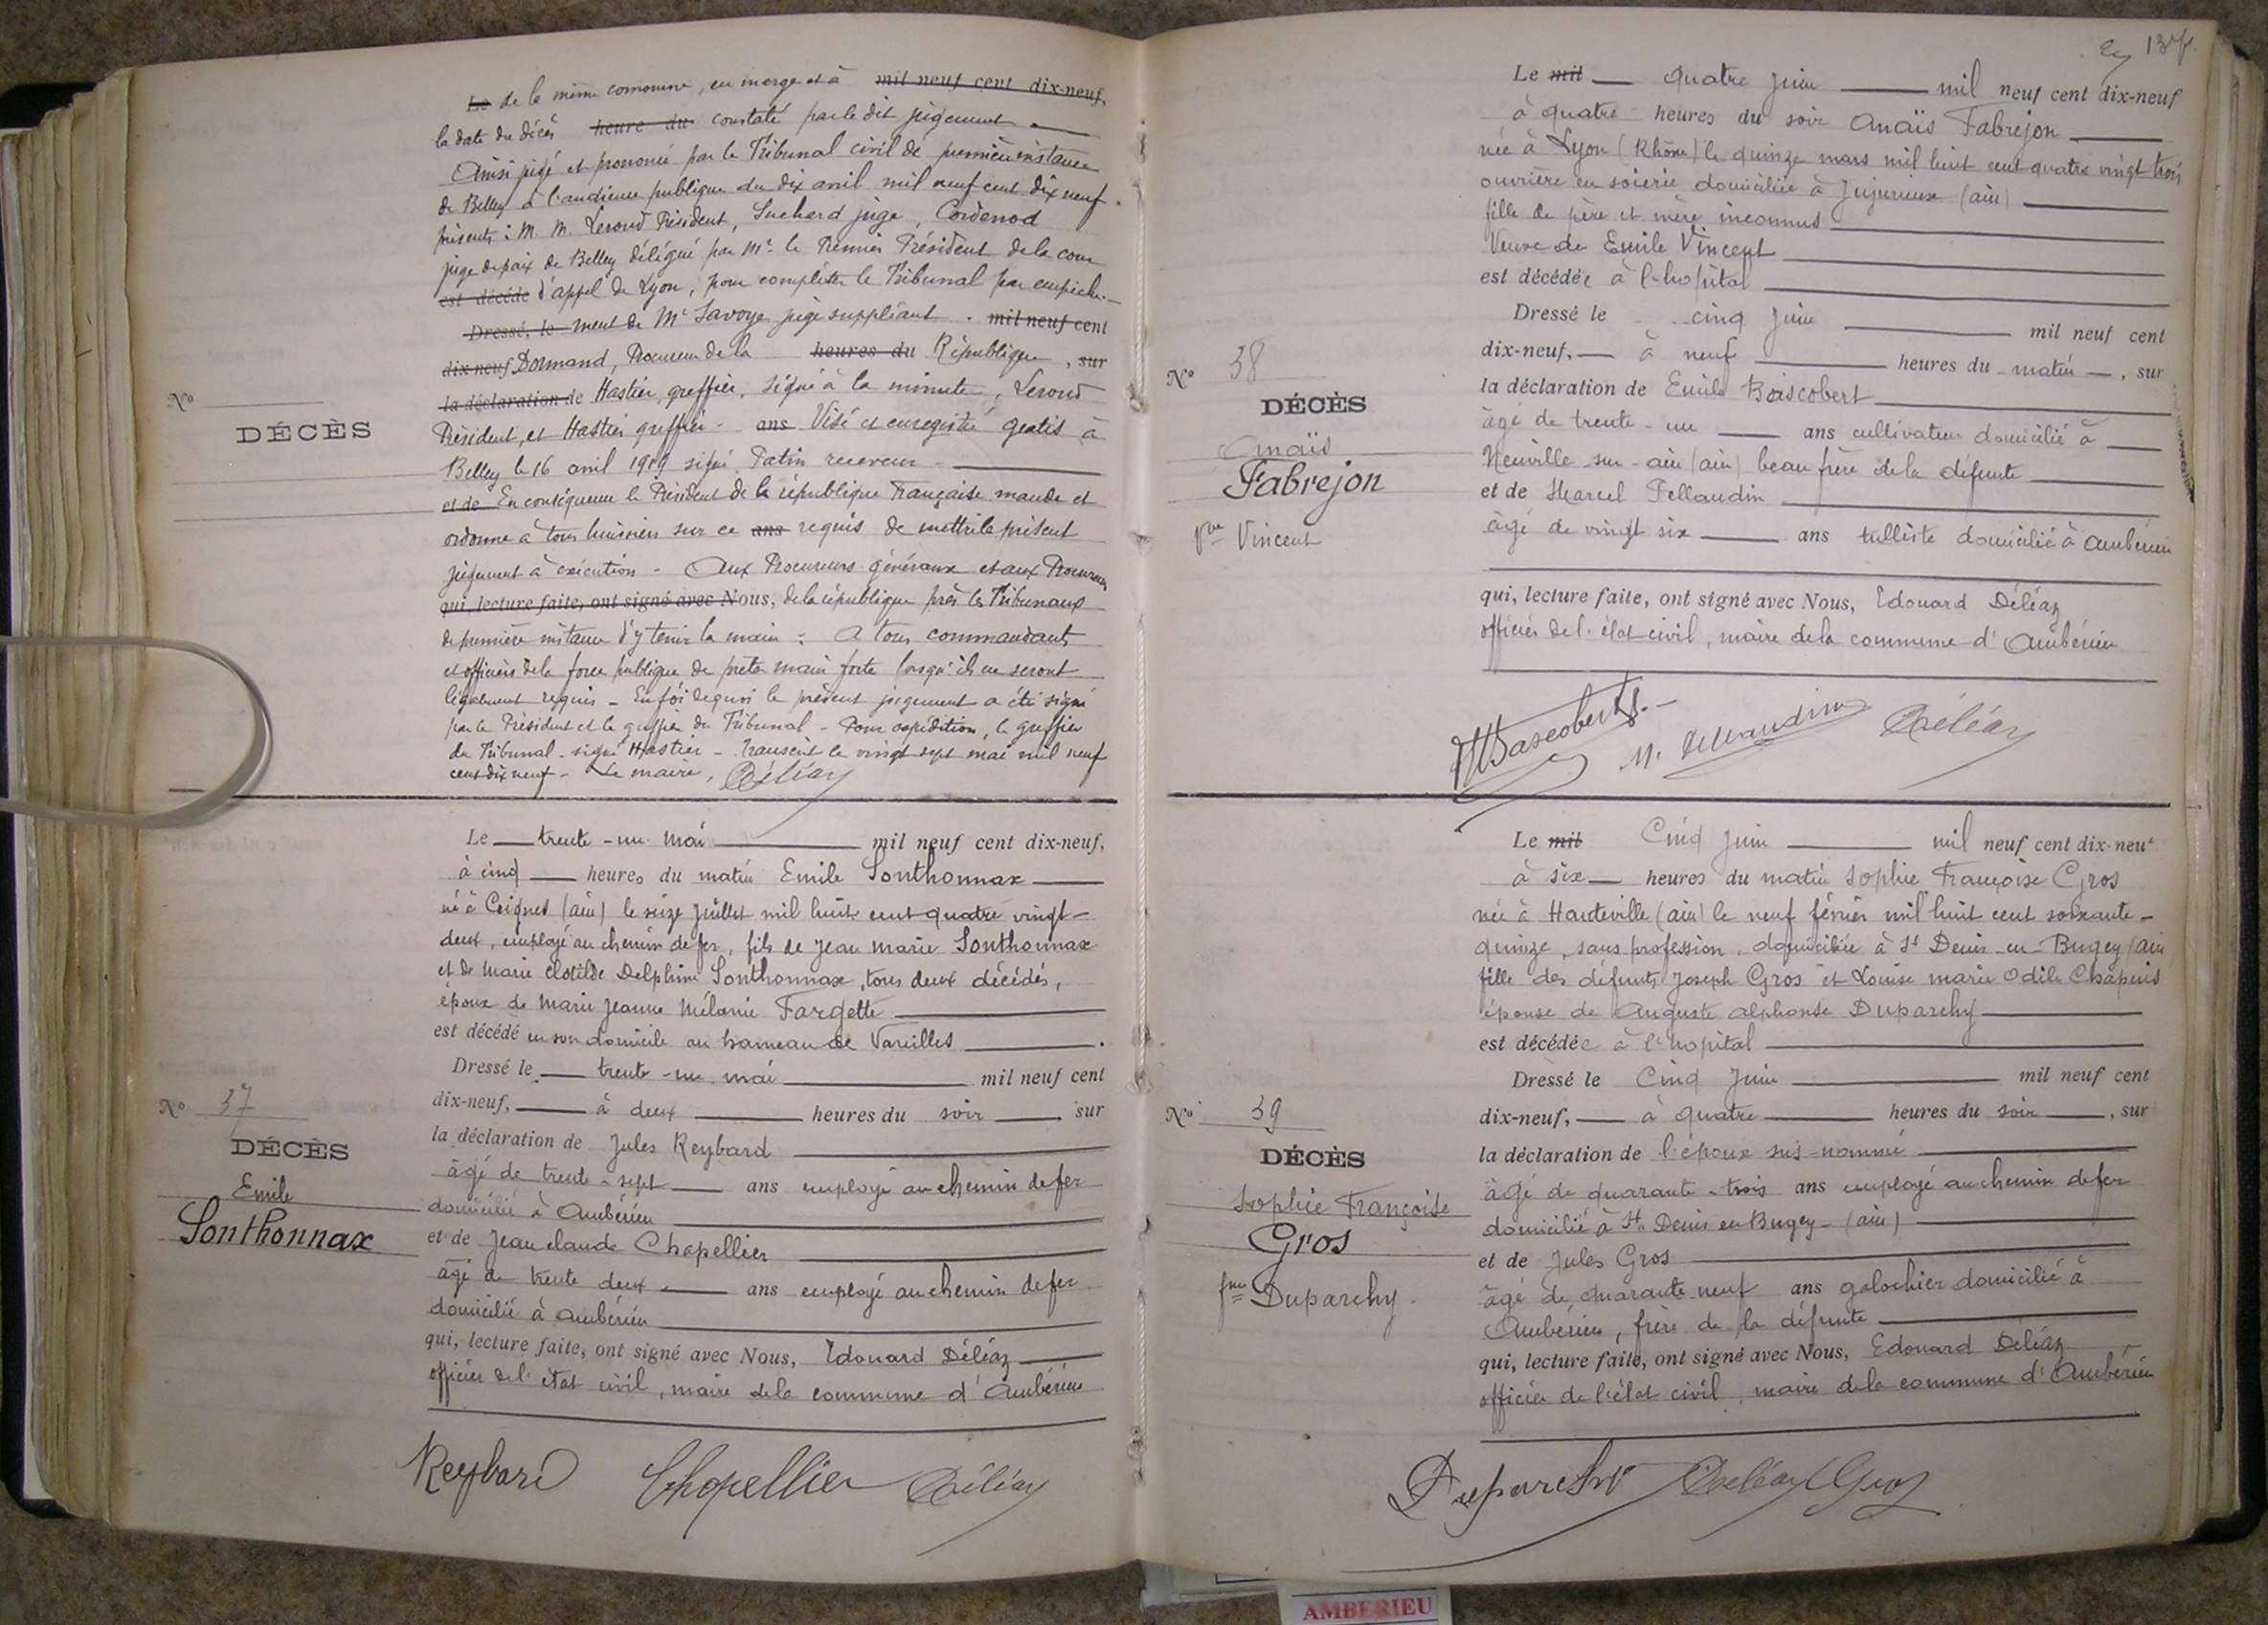 Le de la même commune, en marge et à mil neuf cent dix-neuf,
la date du décès heure du constaté par le dit jugement
Ainsi jugé et prononcé par le Tribunal civil de première instance
de Belley à l'audience publique du dix avril mil neuf cent dix neuf.
présents : M. M. Leroud Président, Suchard juge, Cordenod
juge de paix de Belley délégué par Mr le Premier Président de la cour
est décédé d'appel de Lyon, pour compléter le Tribunal par empêche-
Dressé, le ment de Mr Savoye juge suppléant. mil neuf cent
dix-neuf Dormand, Procureur de la heures du République, sur
la déclaration de Hastier, greffier, signé à la minute, Leroud
Président, et Hastier greffier - ans Visé et enregistré gratis à
Belley le 16 avril 1919 signé Patin receveur -
et de En conséquence le Président de la république Française mande et
ordonne à tous huissiers sur ce ans requis de mettre le présent
jugement à exécution - Aux Procureurs généraux et aux Procureurs
qui, lecture faite, ont signé avec Nous, de la république près les Tribunaux
de première instance d'y tenir la main : A tous commandants
et officiers de la force publique de prêter main forte lorsqu'ils en seront
légalement requis - En foi de quoi le présent jugement a été signé
par le Président et le greffier du Tribunal - Pour expédition, le greffier
du Tribunal - signé Hastier - Transcrit le vingt sept mai mil neuf
cent dix neuf - Le maire, Déléaz
No
DÉCÈS
Le trente-un mai mil neuf cent dix-neuf,
à cinq heures du matin Emile Sonthonnax
né à Ceignes (ain) le seize juillet mil huit cent quatre vingt-
deux, employé au chemin de fer, fils de Jean Marie Sonthonnax
et de Marie Clotilde Delphine Sonthonnax, tous deux décédés,
époux de Marie Jeanne Mélanie Fargette
est décédé en son domicile au hameau de Vareilles.
Dressé le trente-un mai mil neuf cent
dix-neuf, à deux heures du soir sur
la déclaration de Jules Reybard
âgé de trente-sept ans employé au chemin de fer
domicilié à Ambérieu
et de Jean Claude Chapellier
âgé de trente deux ans employé au chemin de fer
domicilié à Ambérieu
qui, lecture faite, ont signé avec Nous, Edouard Déléaz
officier de l'état civil, maire de la commune d'Ambérieu
No 37
DÉCÈS
Emile
Sonthonnax
Reybard Chapellier Déléaz
137
Le mil quatre juin mil neuf cent dix-neuf
à quatre heures du soir Anaïs Fabrejon
née à Lyon (Rhône) le quinze mars mil huit cent quatre vingt trois
ouvrière en soierie domiciliée à Jujurieux (ain)
fille de père et mère inconnus
Veuve de Emile Vincent
est décédée à l'hopital
Dressé le cinq juin mil neuf cent
dix-neuf, à neuf heures du matin, sur
la déclaration de Emile Boiscobert
âgé de trente-un ans cultivateur domicilié à
Neuville-sur-ain (ain) beau frère de la défunte
et de Marcel Pellaudin
âgé de vingt six ans tulliste domicilié à Ambérieu
qui, lecture faite, ont signé avec Nous, Edouard Déléaz
officier de l'état civil, maire de la commune d'Ambérieu
No 38
DÉCÈS
Anaïs
Fabrejon
Vve Vincent
Déléaz
Le mil Cinq juin mil neuf cent dix-neuf
à six heures du matin Sophie Françoise Gros
née à Hauteville (ain) le neuf février mil huit cent soixante-
quinze, sans profession, domiciliée à St Denis-en-Bugey (ain
fille des défunts Joseph Gros et Louise Marie Odile Chapuis
épouse de Auguste Alphonse Duparchy
est décédée à l'hopital
Dressé le Cinq Juin mil neuf cent
dix-neuf, à quatre heures du soir, sur
la déclaration de l'époux sus-nommé
âgé de quarante-trois ans employé au chemin de fer
domicilié à St Denis en Bugey- (ain)
et de Jules Gros
âgé de quarante neuf ans galochier domicilié à
Ambérieu, frère de la défunte
qui, lecture faite, ont signé avec Nous, Edouard Déléaz
officier de l'état civil, maire de la commune d'Ambérieu
No 39
DÉCÈS
Sophie Françoise
Gros
fme Duparchy.
Duparchy Déléaz Gros
AMBERIEU